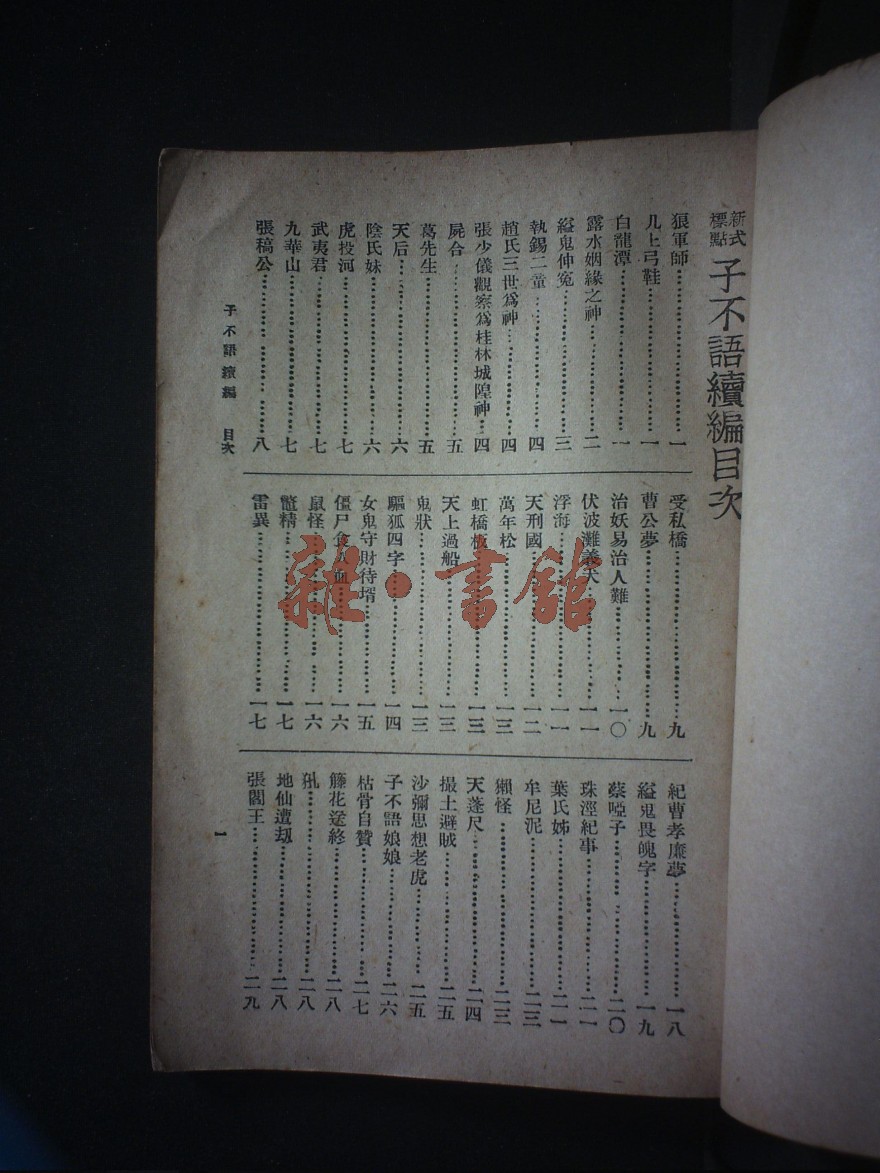 新式標點 子不語續編目次
狼軍師…一
几上弓鞋…一
白龍潭…一
露水姻緣之神…二
縊鬼伸冤…三
執錫二童…四
趙氏三世爲神…四
張少儀觀察爲桂林城隍神…四
屍合…五
葛先生…五
天后…六
陰氏妹…六
虎投河…七
武夷君…七
九華山…七
張稿公…八
受私橋…九
曹公夢…九
治妖易治人難…一〇
伏波灘義犬…一一
浮海…一一
天刑國…一二
萬年松…一三
虹橋板…一三
天上過船…一三
鬼狀…一三
驅狐四字…一四
女鬼守財待壻…一五
僵尸食人血…一六
鼠怪…一六
鼈精…一七
雷異…一七
紀曹孝廉夢…一八
縊鬼畏魄字…一九
蔡啞子…二〇
珠涇紀事…二一
葉氏姊…二一
牟尼泥…二三
獺怪…二三
天蓬尺…二四
撮土避賊…二五
沙彌思想老虎…二五
子不語娘娘…二六
枯骨自贊…二七
籐花送終…二八
犼…二八
地仙遭刼…二八
張閻王…二九
子不語續編 目次
一
雜·書館